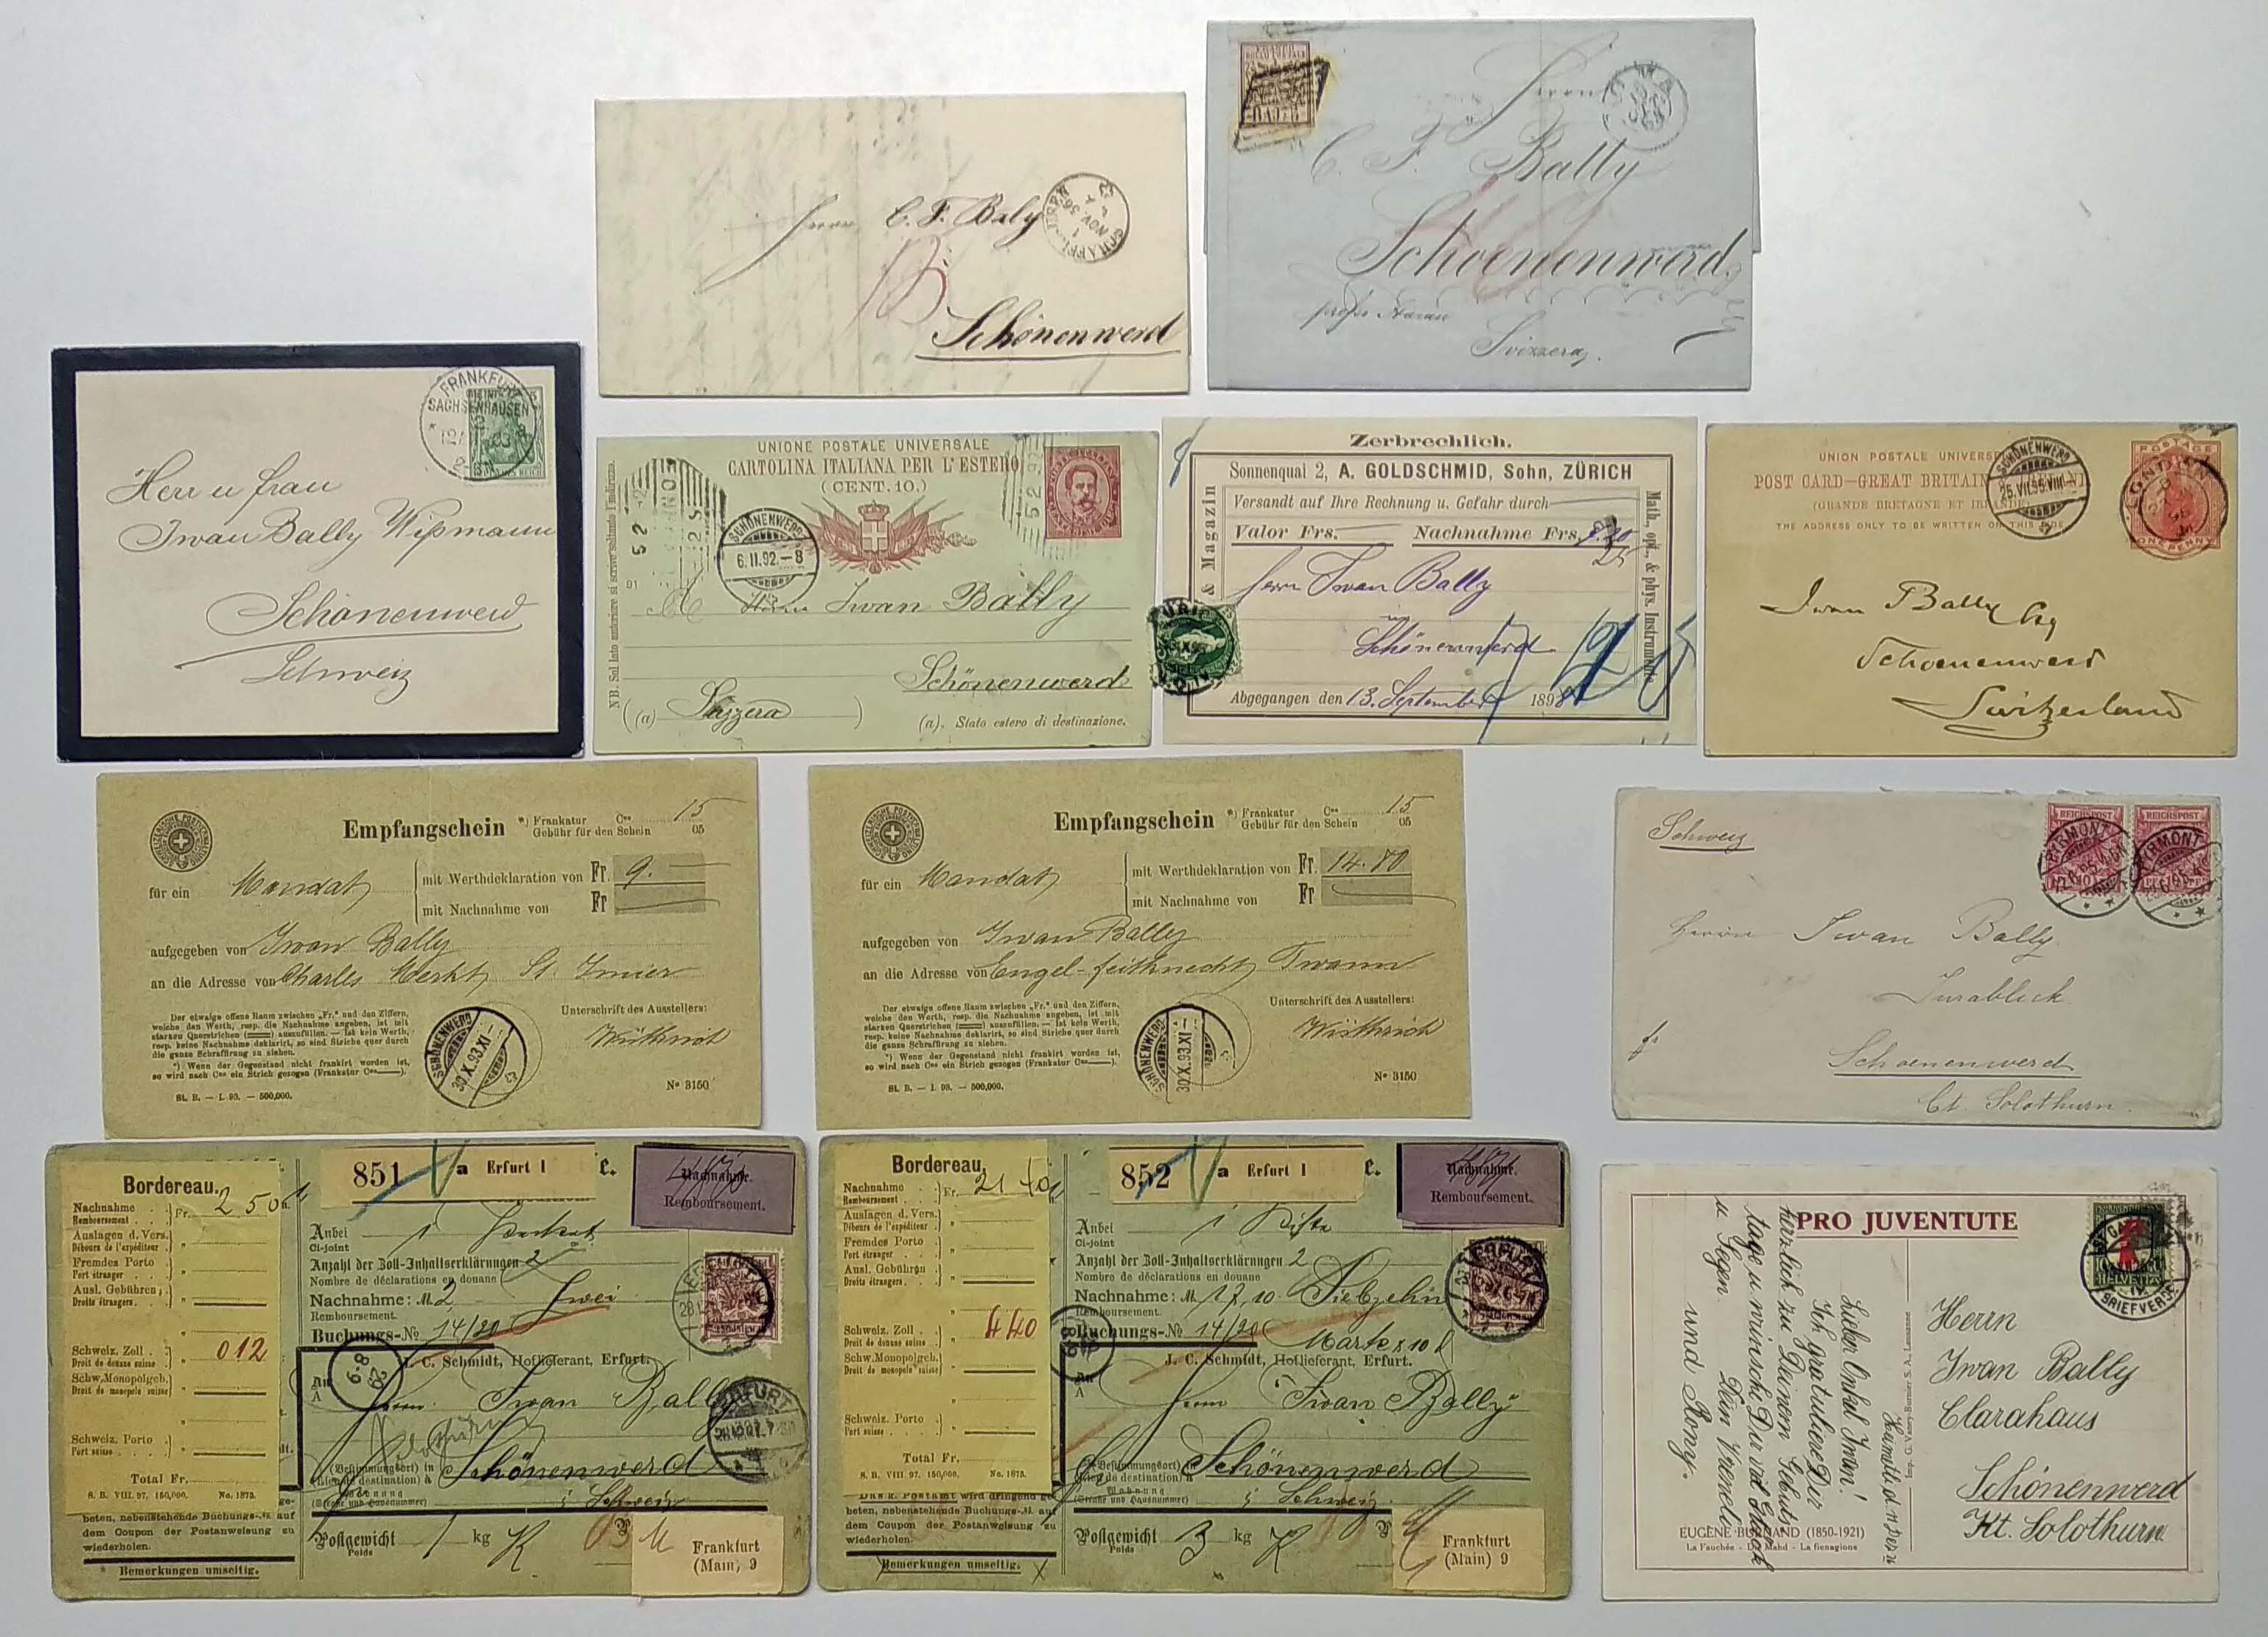 Herrn C. F. Baly
Schönenwerd
1
NOV 56
Herrn
C. F. Bally
Schoenenwerd
Svizzera.
FRANKFURT
SACHSENHAUSEN
Herr u frau
Iwan Bally-Wißmann
Schönenwerd
Schweiz
UNIONE POSTALE UNIVERSALE
CARTOLINA ITALIANA PER L'ESTERO
(CENT. 10.)
SCHÖNENWERD
6.II.92.–8
Herrn Iwan Bally
Schönenwerd
(a) Svizzera )
(a). Stato estero di destinazione.
NB. Sul lato anteriore si scrive soltanto l'indirizzo.
91
Zerbrechlich.
Sonnenquai 2, A. GOLDSCHMID, Sohn, ZÜRICH
Versandt auf Ihre Rechnung u. Gefahr durch
Valor Frs. Nachnahme Frs.
Herrn Iwan Bally
in
Schönenwerd
Abgegangen den 13. September 189
& Magazin
Math., opt., & phys. Instrumente
UNION POSTALE UNIVERSELLE
POST CARD–GREAT BRITAIN
(GRANDE BRETAGNE ET IRLANDE)
THE ADDRESS ONLY TO BE WRITTEN ON THIS SIDE
SCHÖNENWERD
POSTAGE
LONDON
ONE PENNY
Iwan Bally Esq
Schoenenwerd
Switzerland
Empfangschein *) Frankatur Cᵉˢ 15
Gebühr für den Schein 05
für ein Mandat
mit Werthdeklaration von Fr. 9.–
mit Nachnahme von Fr
aufgegeben von Iwan Bally
an die Adresse von Charles Merkt, St. Imier
Der etwaige offene Raum zwischen „Fr." und den Ziffern,
welche den Werth, resp. die Nachnahme angeben, ist mit
starken Querstrichen auszufüllen. — Ist kein Werth,
resp. keine Nachnahme deklarirt, so sind Striche quer durch
die ganze Schraffirung zu ziehen.
*) Wenn der Gegenstand nicht frankirt worden ist,
so wird nach Cᵉˢ ein Strich gezogen (Frankatur Cᵉˢ——).
St. B. — I. 93. — 500,000.
SCHÖNENWERD
30.X.93.XI–
Unterschrift des Ausstellers:
Wüthrich
Nº 3150
Empfangschein *) Frankatur Cᵉˢ 15
Gebühr für den Schein 05
für ein Mandat
mit Werthdeklaration von Fr. 14.80
mit Nachnahme von Fr
aufgegeben von Iwan Bally
an die Adresse von Engel-Feitknecht, Twann
Der etwaige offene Raum zwischen „Fr." und den Ziffern,
welche den Werth, resp. die Nachnahme angeben, ist mit
starken Querstrichen auszufüllen. — Ist kein Werth,
resp. keine Nachnahme deklarirt, so sind Striche quer durch
die ganze Schraffirung zu ziehen.
*) Wenn der Gegenstand nicht frankirt worden ist,
so wird nach Cᵉˢ ein Strich gezogen (Frankatur Cᵉˢ——).
St. B. — I. 93. — 500,000.
SCHÖNENWERD
30.X.93.XI–
Unterschrift des Ausstellers:
Wüthrich
Nº 3150
Schweiz
REICHSPOST
REICHSPOST
PYRMONT
PYRMONT
Herrn Iwan Bally
Jurablick
Schoenenwerd
Ct. Solothurn.
Bordereau.
Nachnahme Fr. 2 50
Remboursement
Auslagen d. Vers.
Débours de l'expéditeur
Fremdes Porto
Port étranger
Ausl. Gebühren
Droits étrangers
Schweiz. Zoll 0 12
Droit de douane suisse
Schw. Monopolgeb.
Droit de monopole suisse
Schweiz. Porto
Port suisse
Total Fr.
S. B. VIII. 97. 150,000. No. 1875.
beten, nebenstehende Buchungs-№ auf
dem Coupon der Postanweisung zu
wiederholen.
Bemerkungen umseitig.
851 a Erfurt 1
Nachnahme.
Remboursement.
Anbei 1 Packet
Ci-joint
Anzahl der Zoll-Inhaltserklärungen 2
Nombre de déclarations en douane
Nachnahme: M. 2 Zwei
Remboursement.
Buchungs-№ 14/20
J. C. Schmidt, Hoflieferant, Erfurt.
An
A
Herrn Iwan Bally
ERFURT
(Bestimmungsort) in Schönenwerd
(lieu de destination) à
Wohnung
(Straße und Hausnummer)
Schweiz
Postgewicht 1 kg
Poids
Frankfurt
(Main) 9
Bordereau.
Nachnahme Fr. 21 40
Remboursement
Auslagen d. Vers.
Débours de l'expéditeur
Fremdes Porto
Port étranger
Ausl. Gebühren
Droits étrangers.
Schweiz. Zoll 4 40
Droit de douane suisse
Schw. Monopolgeb.
Droit de monopole suisse
Schweiz. Porto
Port suisse
Total Fr.
S. B. VIII. 97. 150,000. No. 1875.
Das K. Postamt wird dringend ge-
beten, nebenstehende Buchungs-№ auf
dem Coupon der Postanweisung zu
wiederholen.
Bemerkungen umseitig.
852 a Erfurt 1
Nachnahme.
Remboursement.
Anbei 1 Kiste
Ci-joint
Anzahl der Zoll-Inhaltserklärungen 2
Nombre de déclarations en douane
Nachnahme: M. 17,10 Siebzehn
Remboursement.
Mark & 10
Buchungs-№ 14/20
J. C. Schmidt, Hoflieferant, Erfurt.
An
A
Herrn Iwan Bally
ERFURT
(Bestimmungsort) in Schönenwerd
(lieu de destination) à
Wohnung
(Straße und Hausnummer)
Schweiz
Postgewicht 3 kg
Poids
Frankfurt
(Main) 9
PRO JUVENTUTE
HELVETIA
ST. GALLEN
BRIEFVERSAND
Lieber Onkel Iwan!
Ich gratuliere Dir
herzlich zu Deinem Geburts-
tage u. wünsche Dir viel Glück
u Segen. Dein Vreneli
und Rony.
Herrn
Iwan Bally
Clarahaus
Schönenwerd
Kt. Solothurn.
EUGÈNE BURNAND (1850-1921)
La Fauchée - Die Mahd - La fienagione
Imp. G. Vaney-Burnier S. A. Lausanne